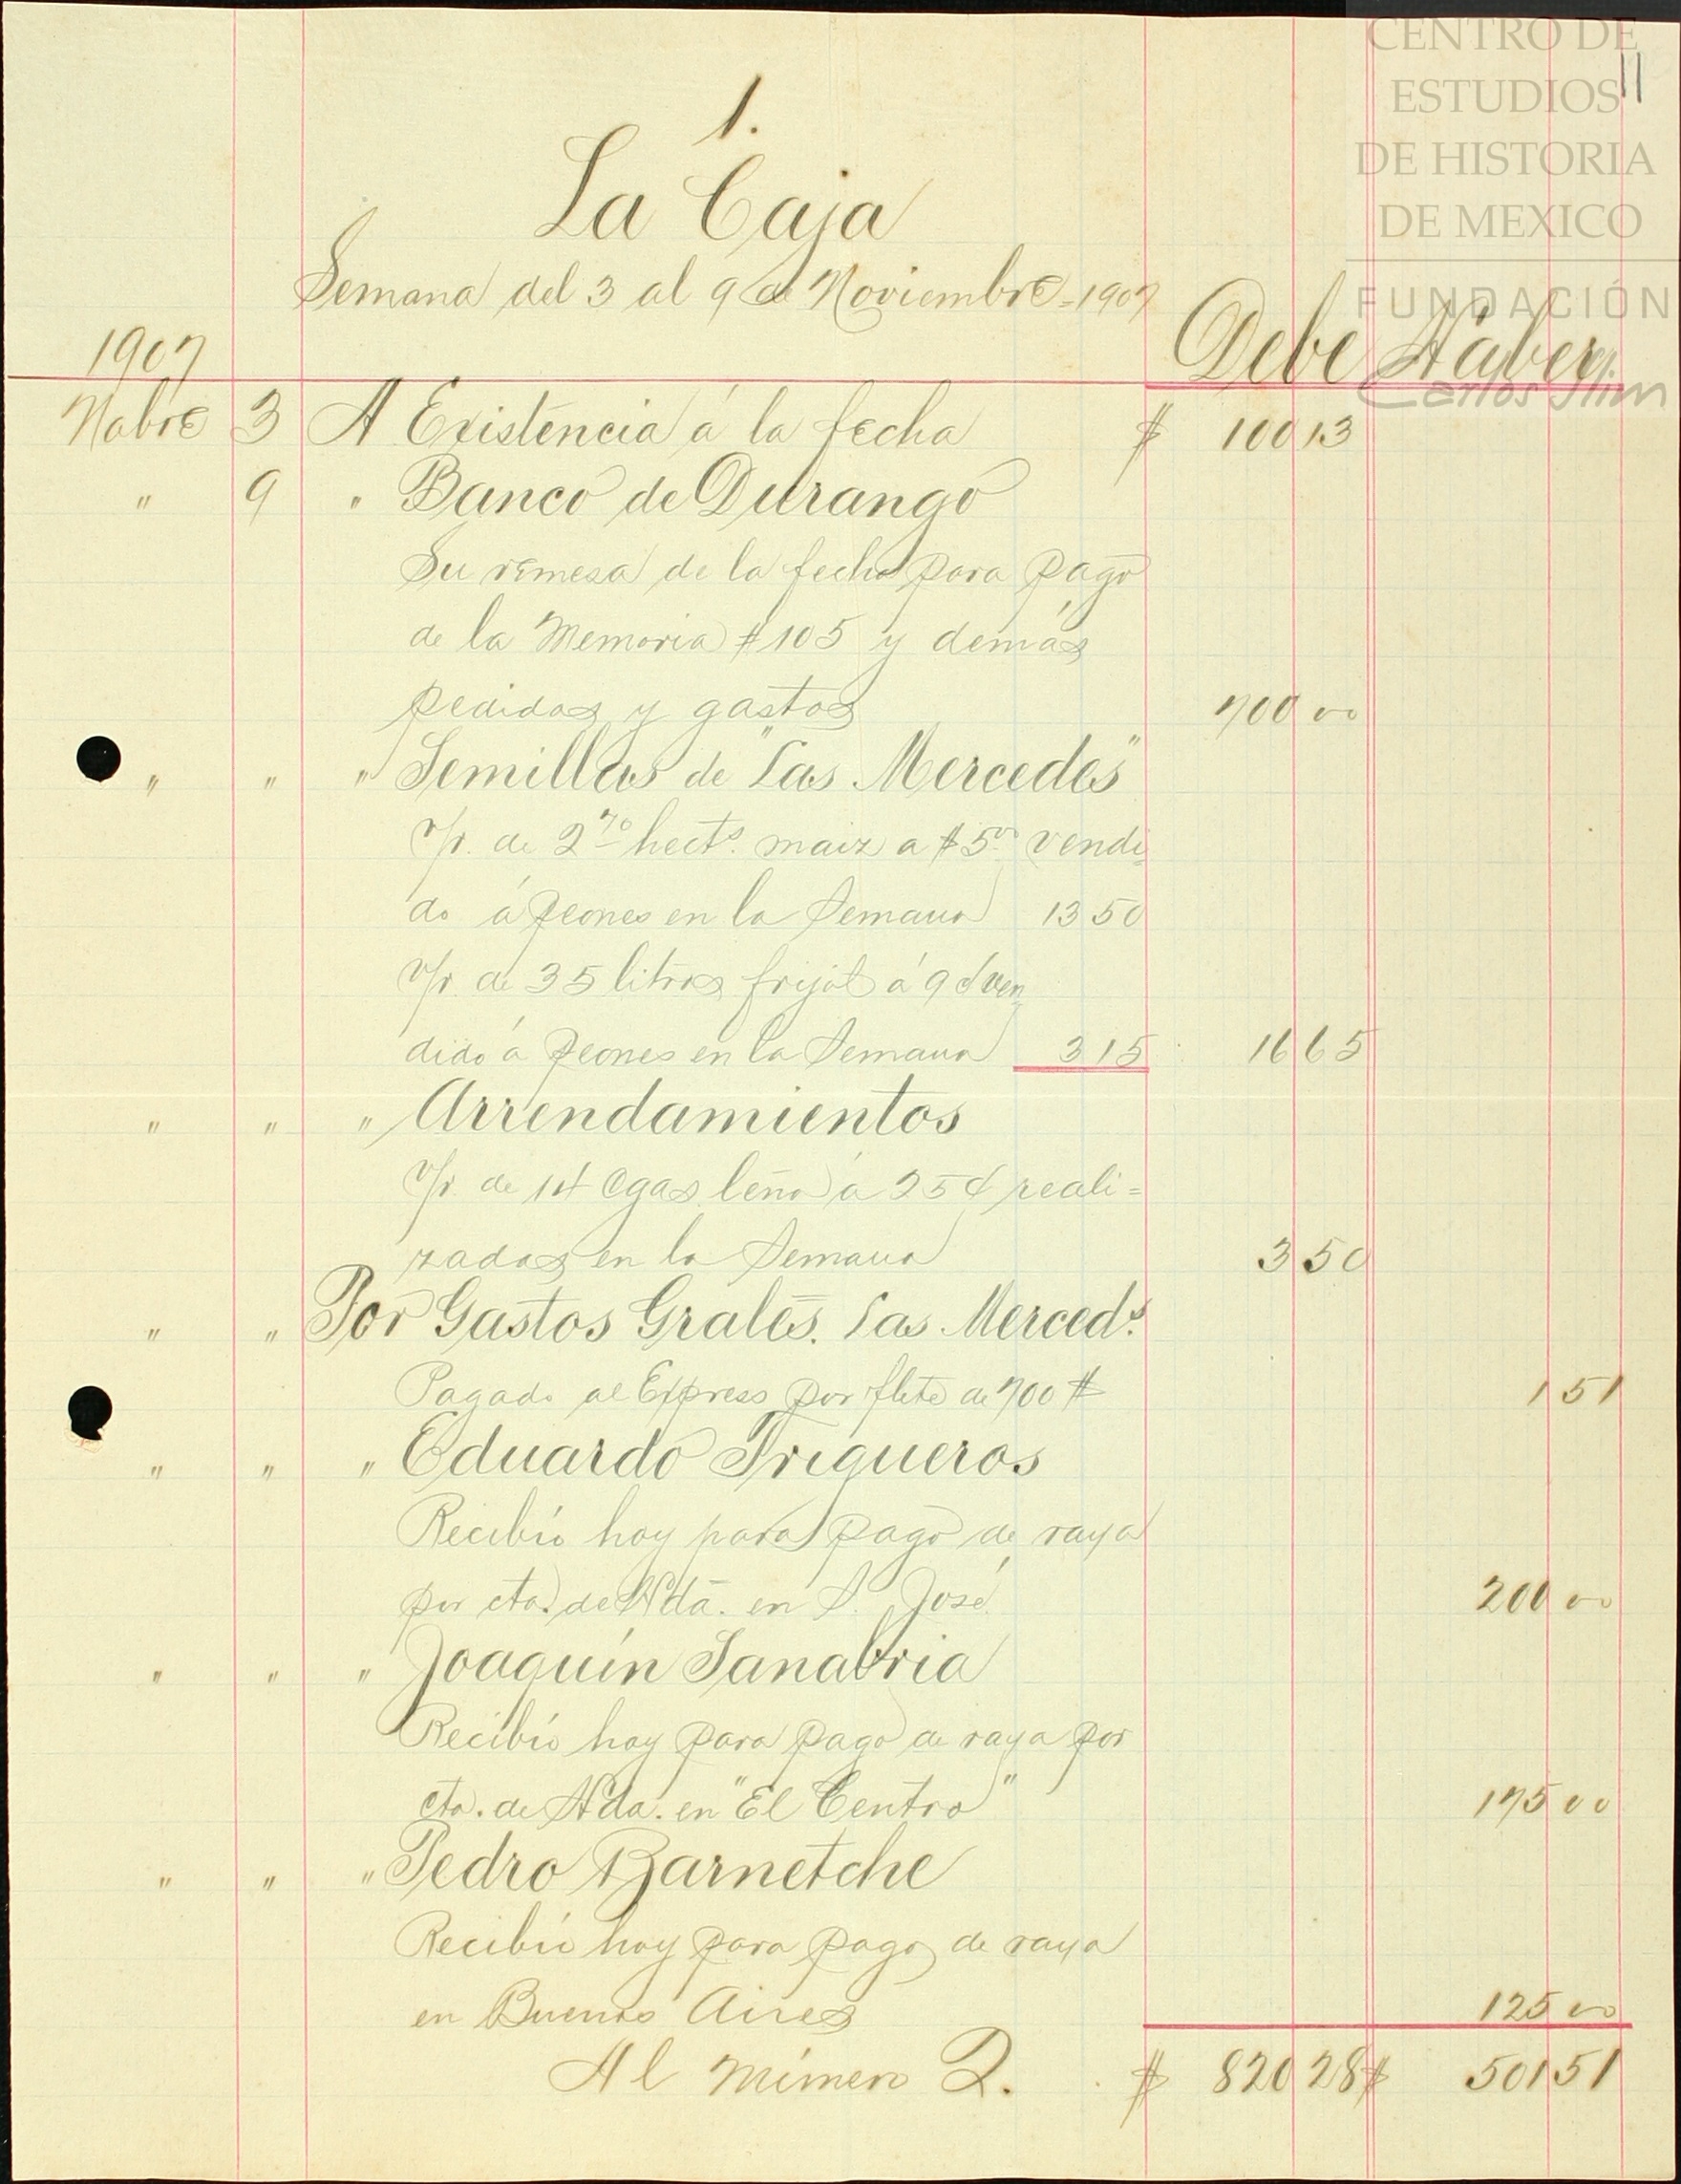 CENTRO DE
ESTUDIOS
DE HISTORIA
DE MEXICO
FUNDACIÓN
Carlos Slim
11
1.
La Caja
Semana del 3 al 9 de Noviembre-1907
1907 Debe Haber
Nobre 3 A Existencia á la fecha $ 100 13
" 9 " Banco de Durango
Su remesa de la fecha para pago
de la Memoria #105 y demás
pedidos y gastos 700 00
" " " Semillas de "Las Mercedes"
v/r. de 2 70 hects. maiz a $5 00 vendi-
do á peones en la Semana 13 50
v/r. de 35 litros frijol á 9¢ ven-
dido á peones en la Semana 3 15 16 65
" " " Arrendamientos
v/r. de 14 Cgas leña á 25¢ reali=
zadas en la Semana 3 50
" " Por Gastos Grales. Las Merceds.
Pagado al Express por flete de 700 $ 1 51
" " " Eduardo Trigueros
Recibió hoy para pago de raya
por cta. de Hda. en S. José 200 00
" " " Joaquín Sanabria
Recibió hoy para pago de raya por
cta. de Hda. en "El Centro" 175 00
" " " Pedro Barnetche
Recibió hoy para pago de raya
en Buenos Aires 125 00
Al número 2. $ 820 28 $ 501 51